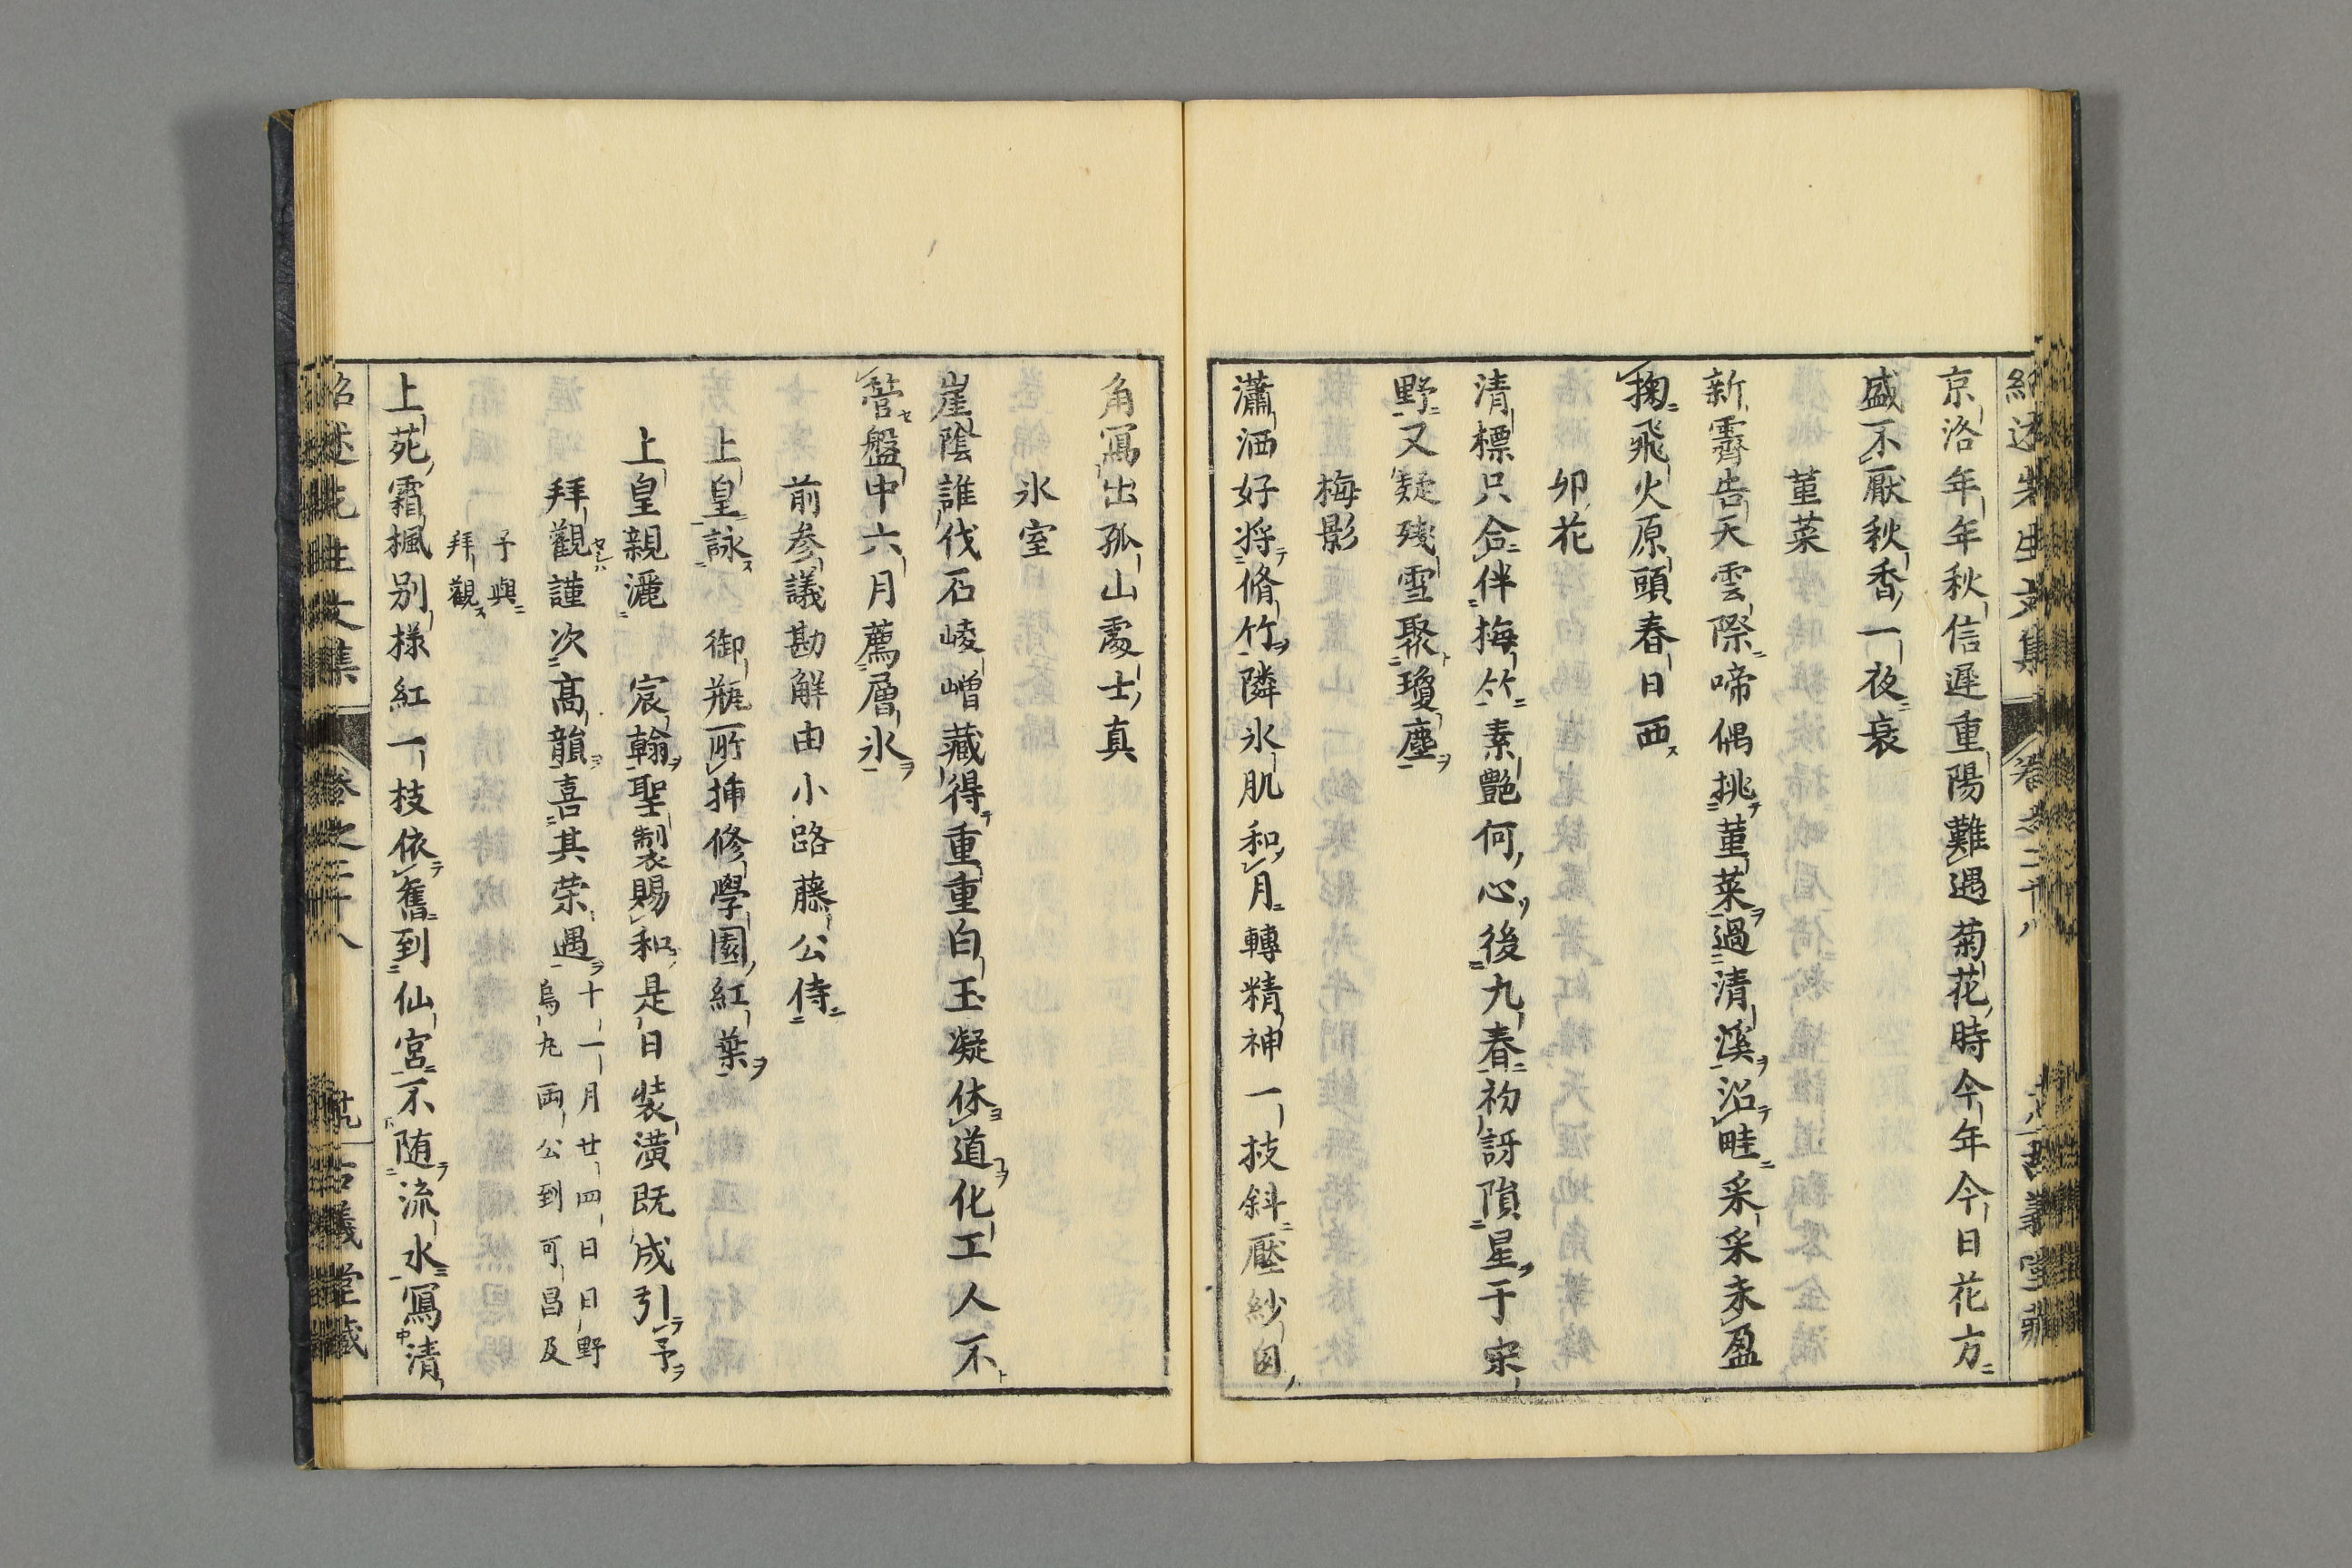 京洛年年秋信遲重陽難遇菊花時今年今日花方
盛不厭秋香一夜衰
菫菜
新霽告天雲際啼偶挑菫菜過清溪沿畦采采未盈
掬飛火原頭春日西
卯花
清標只合伴梅竹素艷何心後九春初訝隕星于宋
野又疑殘雪聚瓊塵
梅影
瀟洒好将脩竹隣氷肌和月轉精神一技斜壓紗囱
角寫出孤山處士真
氷室
崖陰誰伐石崚嶒藏得重重白玉凝休道化工人不
管盤中六月薦層氷
前参議勘解由小路藤公侍
上皇詠御瓶所挿修學園紅葉
上皇親灑宸翰聖製賜和是日装潢既成引予
拜觀謹次高韻喜其荣遇
十一月廿四日日野
烏丸両公到可昌及
予與
拜觀
上苑霜楓别様紅一枝依舊到仙宮不随流水寫清
紹述先生文集
卷之二十八
古義堂藏